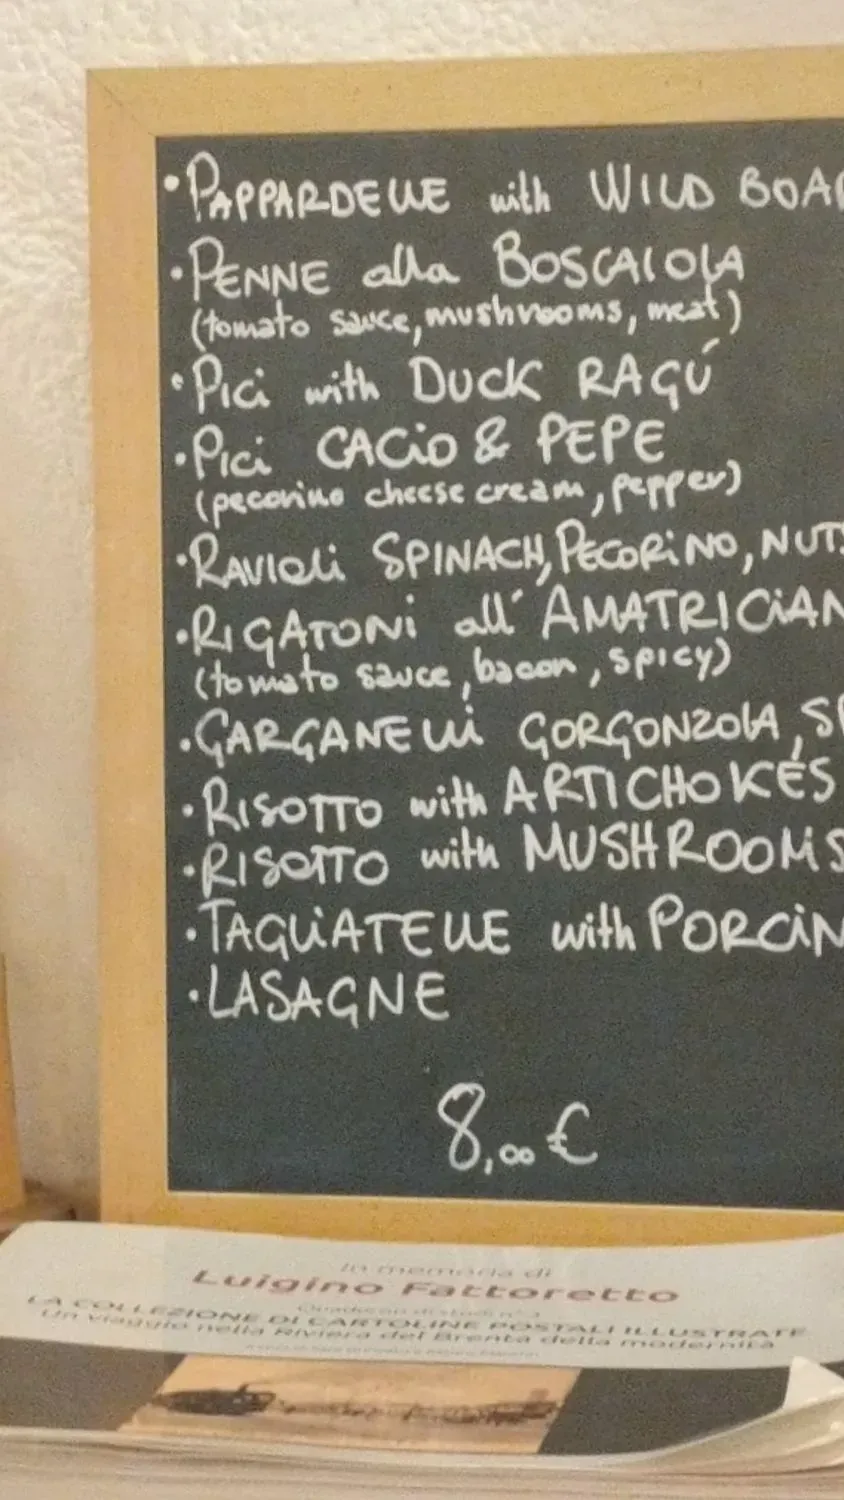 •PAPPARDELLE with WILD BOA
•PENNE alla BOSCAIOLA
(tomato sauce, mushrooms, meat)
•Pici with DUCK RAGÚ
•Pici CACiO & PEPE
(pecorino cheese cream, pepper)
•RAVIOli SPINACH, PECORiNO, NUTS
•RIGATONi all' AMATRICiAN
(tomato sauce, bacon, spicy)
•GARGANELLi GORGONZOLA, SP
•RISOTTO with ARTICHOKES
•RISOTTO with MUSHROOMS
•TAGLiATELLE with PORCiN
•LASAGNE
8,00 €
In memoria di
Luigino Fattoretto
LA COLLEZIONE DI CARTOLINE POSTALI ILLUSTRATE
Un viaggio nella Riviera del Brenta della modernità